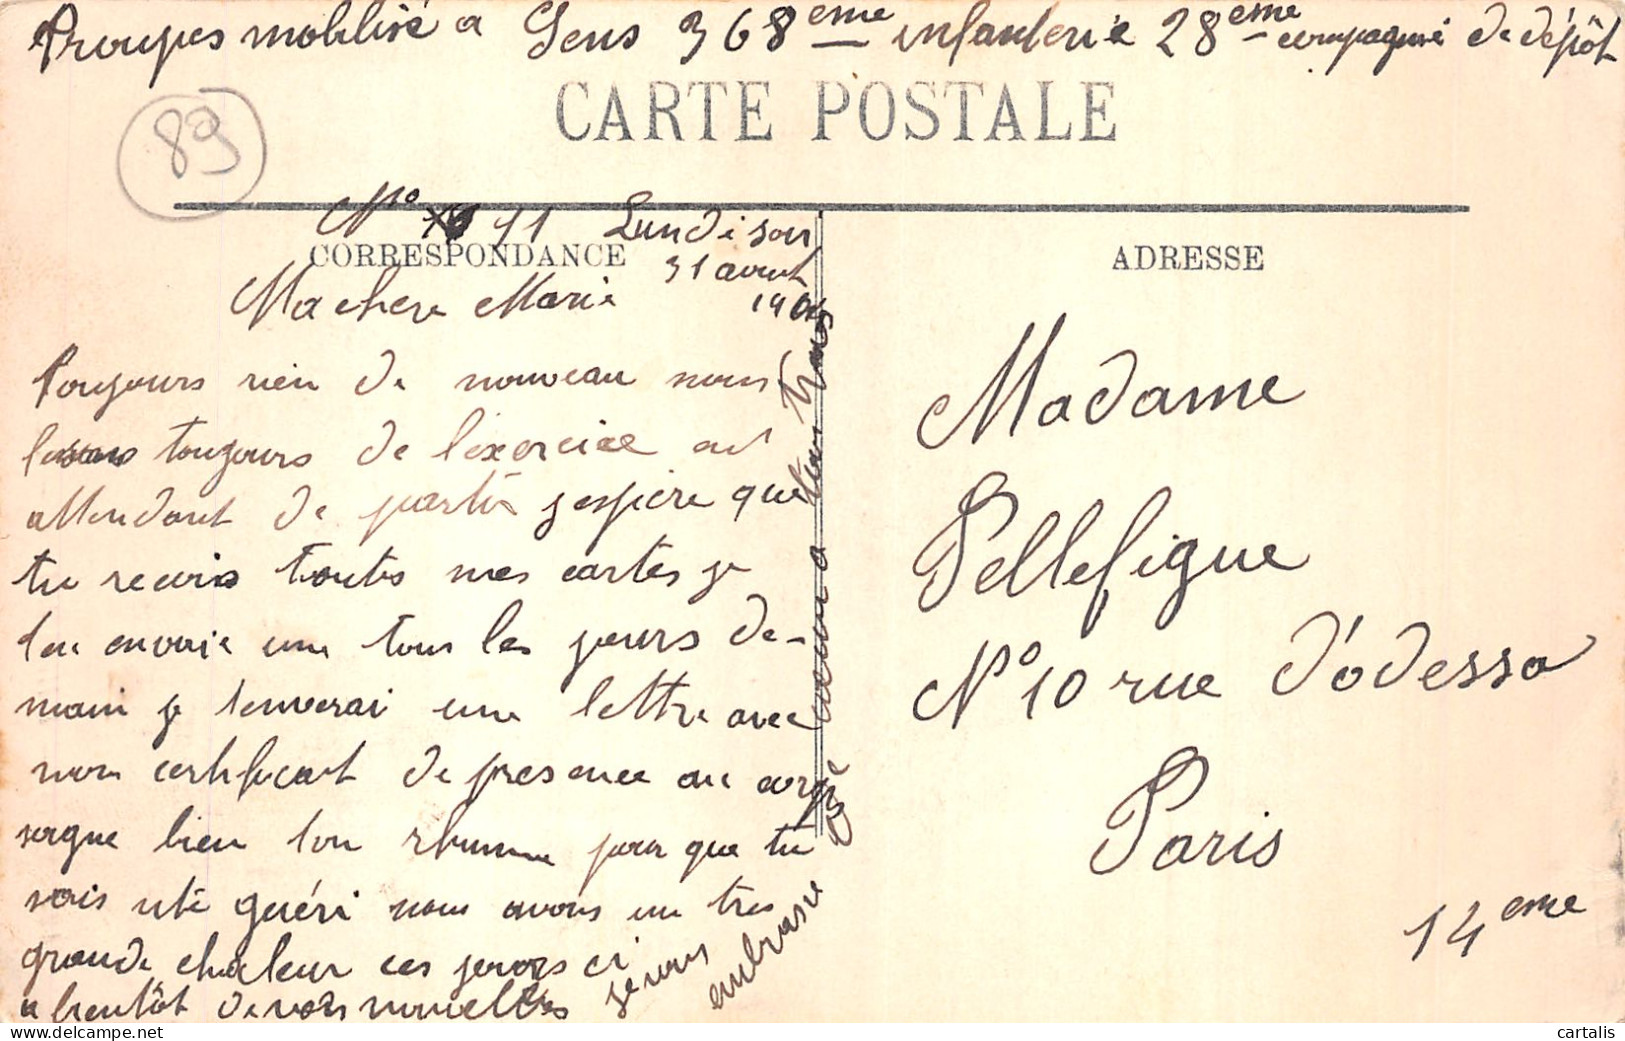 Troupes mobilisé a Sens 368 eme infanterie 28 eme compagnie de dépôt
CARTE POSTALE
89
N° 11 Lundi soir
CORRESPONDANCE
31 aout
Ma chere Marie
Toujours rien de nouveau nous
faisons toujours de l'exercice en
attendant de partir j espere que
tu recois toutes mes cartes je
t'en envoie une tous les jours de-
main je t'enverai une lettre avec
mon certificat de presence au corps
soigne bien ton rhume pour que tu
sois vite guéri nous avons un tres
grande chaleur ces jours ci
a bientôt de vos nouvelles
je vous
embrasse
ADRESSE
Madame
Pellefigue
N° 10 rue d'ódessa
Paris
14 eme
cartalis